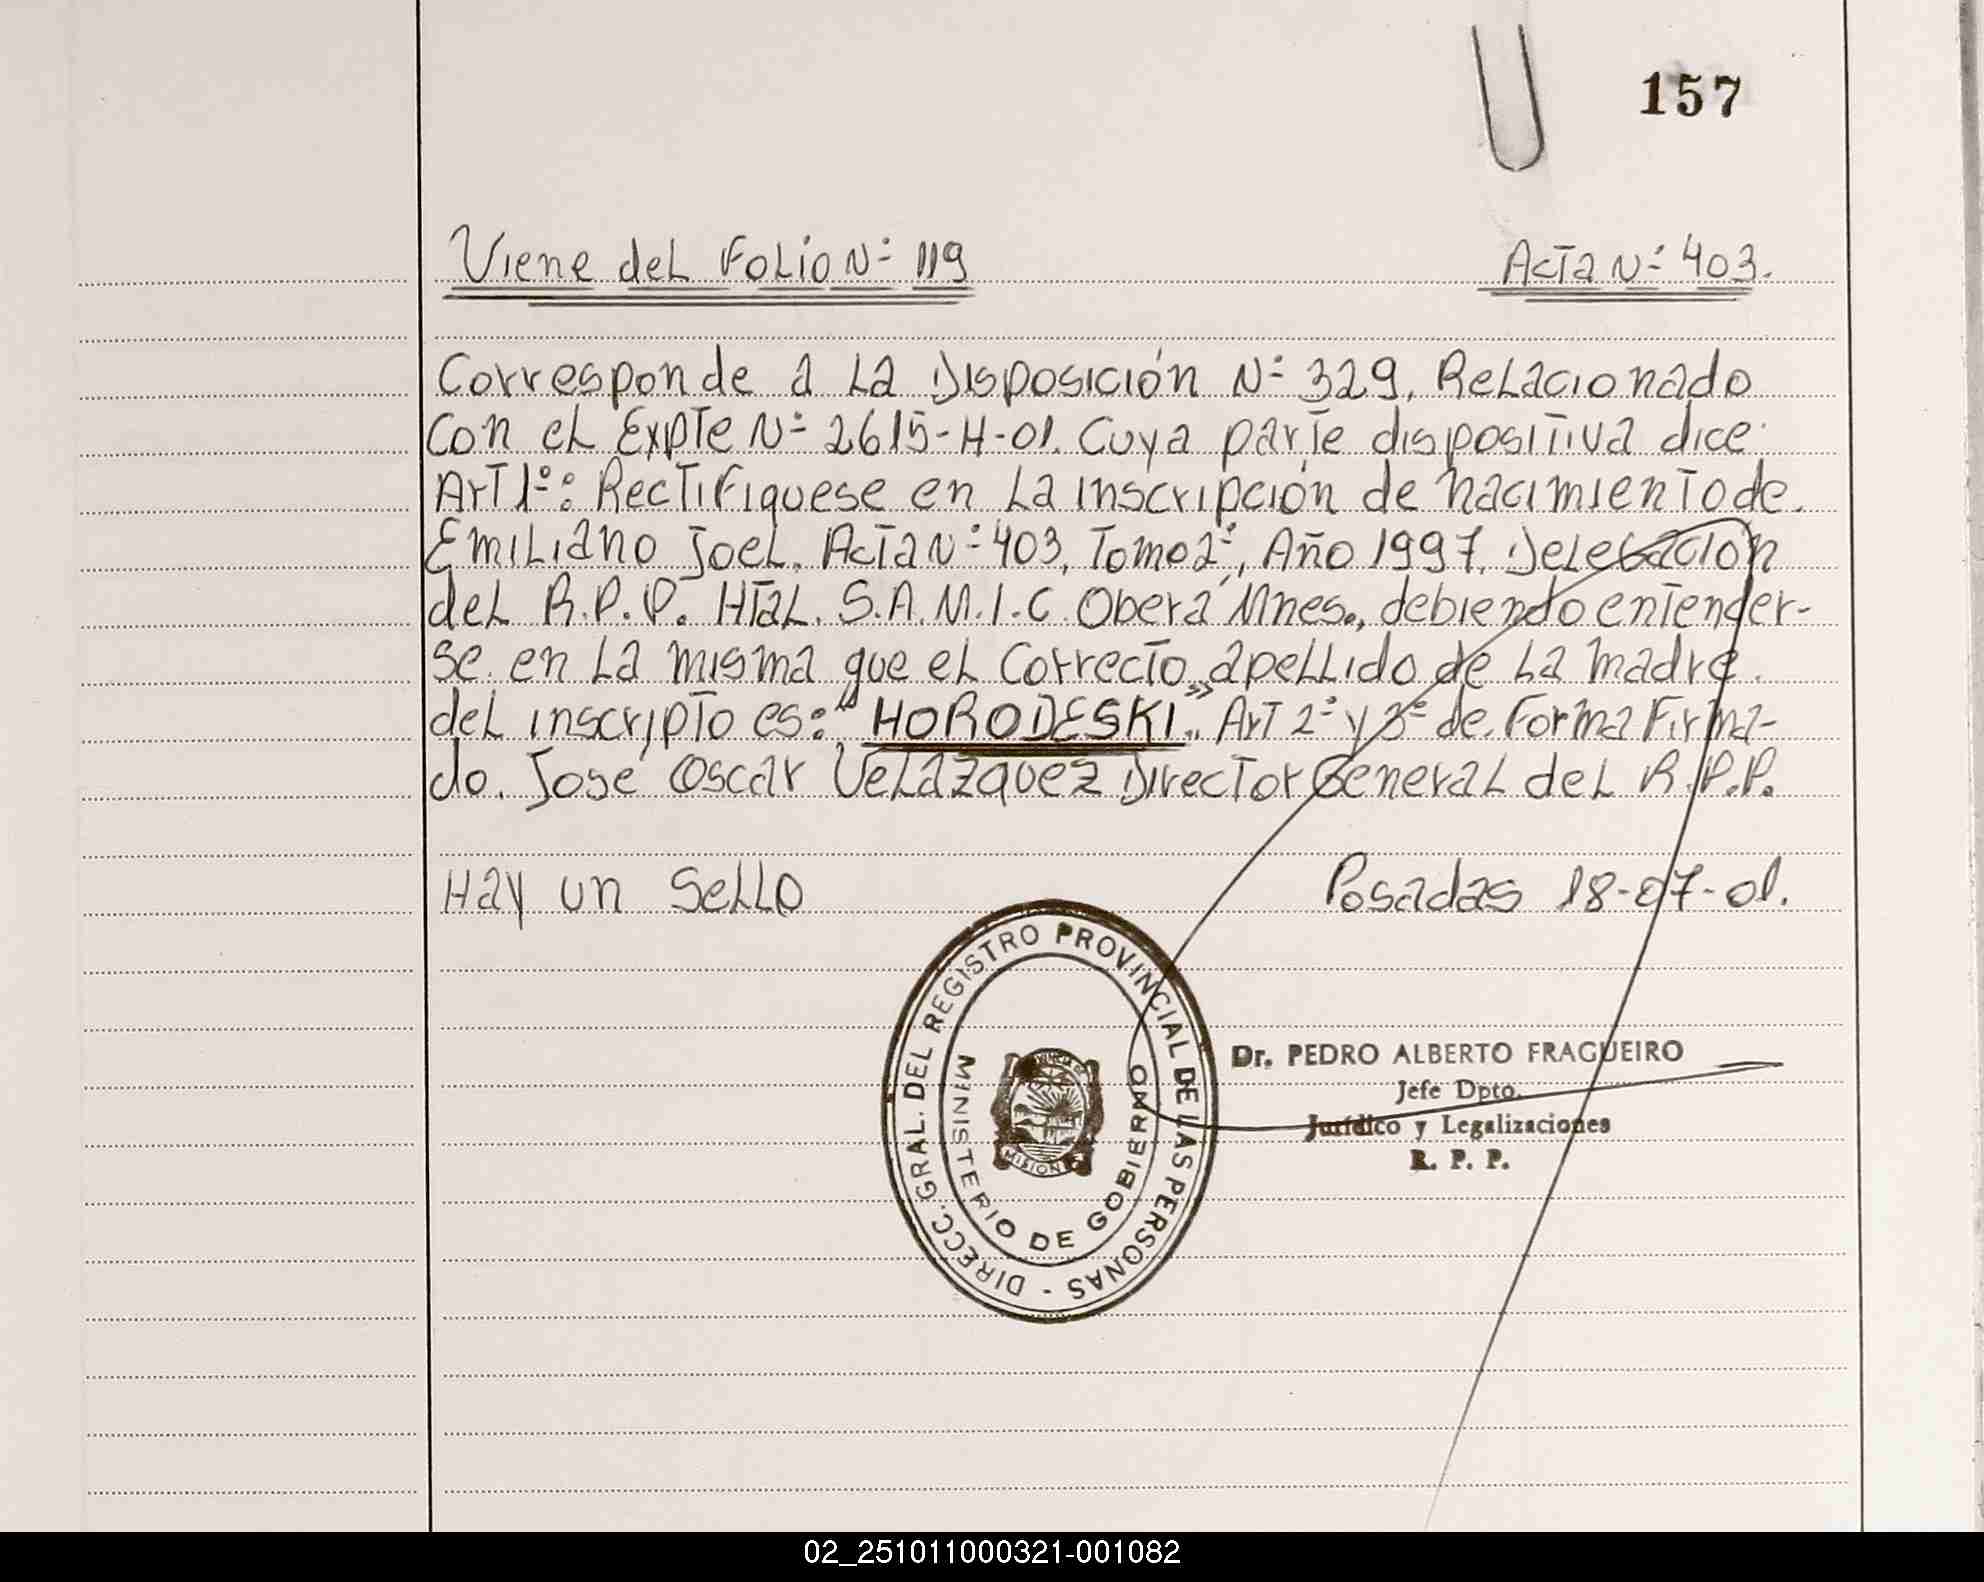 157
Viene del Folio Nº 119
Acta Nº 403.
Corresponde a la Disposición Nº 329, Relacionado
con el Expte Nº 2615-H-01. Cuya parte dispositiva dice:
Art 1º: Rectifiquese en la inscripción de nacimiento de.
Emiliano Joel. Acta Nº 403, Tomo 2º, Año 1997. Delegación
del R.P.P. Htal. S.A.M.I.C. Oberá Mnes., debiendo entender-
se en la misma que el correcto apellido de la madre.
del inscripto es: "HORODESKI". Art 2º y 3º de. Forma Firma-
do. José Oscar Velazquez Director General del R.P.P.
Hay un Sello
Posadas 18-07-01.
DIRECC. GRAL. DEL REGISTRO PROVINCIAL DE LAS PERSONAS -
MINISTERIO DE GOBIERNO
PROVINCIA DE
MISIONES
Dr. PEDRO ALBERTO FRAGUEIRO
Jefe Dpto.
Jurídico y Legalizaciones
R. P. P.
02_251011000321-001082